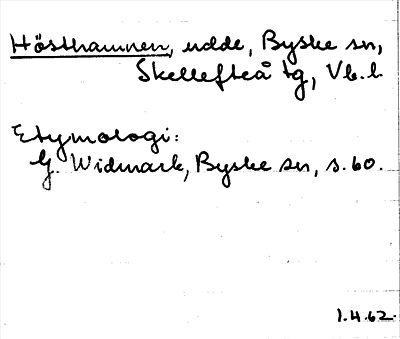 Hösthamnen, udde, Byske sn,
Skellefteå tg, Vb.l.
Etymologi:
G. Widmark, Byske sn, s. 60.
1.4.62.